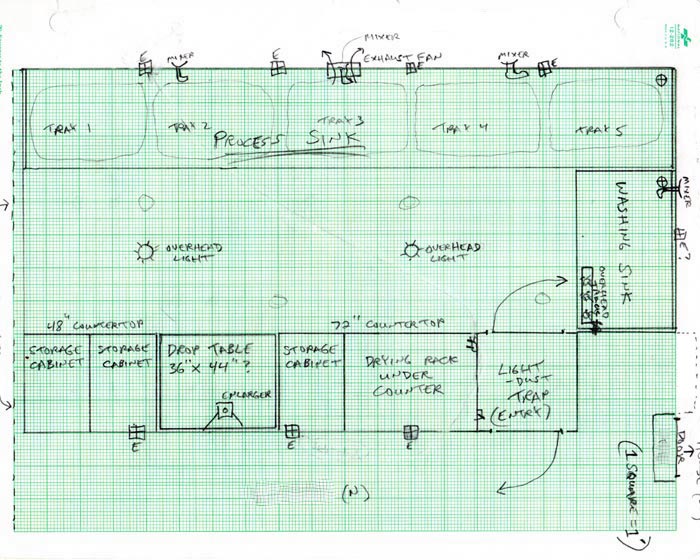 MIXER
E
MIXER
E
EXHAUST FAN
E
MIXER
E
TRAY 1
TRAY 2
TRAY 3
TRAY 4
TRAY 5
PROCESS SINK
MIXER
WASHING SINK
E?
OVERHEAD
LIGHT
OVERHEAD
LIGHT
OVERHEAD
48" COUNTERTOP
72" COUNTERTOP
STORAGE
CABINET
STORAGE
CABINET
DROP TABLE
36" X 44" ?
ENLARGER
STORAGE
CABINET
DRYING RACK
UNDER
COUNTER
LIGHT
-DUST
TRAP
(ENTRY)
E
E
E
(N)
DOOR
(1 SQUARE = 1")